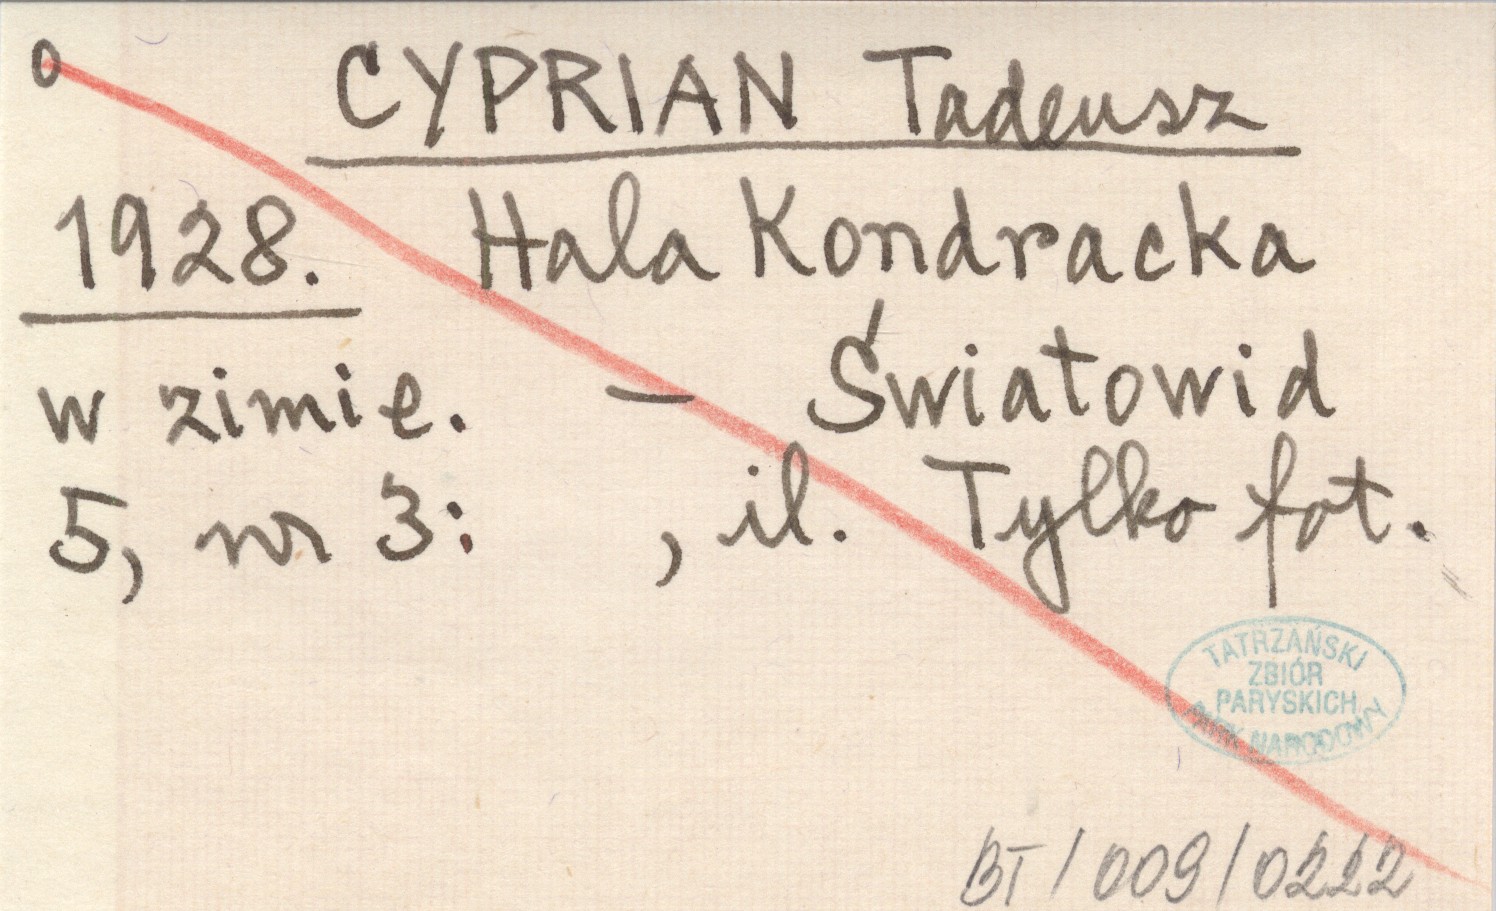 0 CYPRIAN Tadeusz
1928. Hala Kondracka
w zimie. – Światowid
5, nr 3: , il. Tylko fot.
TATRZAŃSKI
ZBIÓR
PARYSKICH
PARK NARODOWY
BT/009/0222